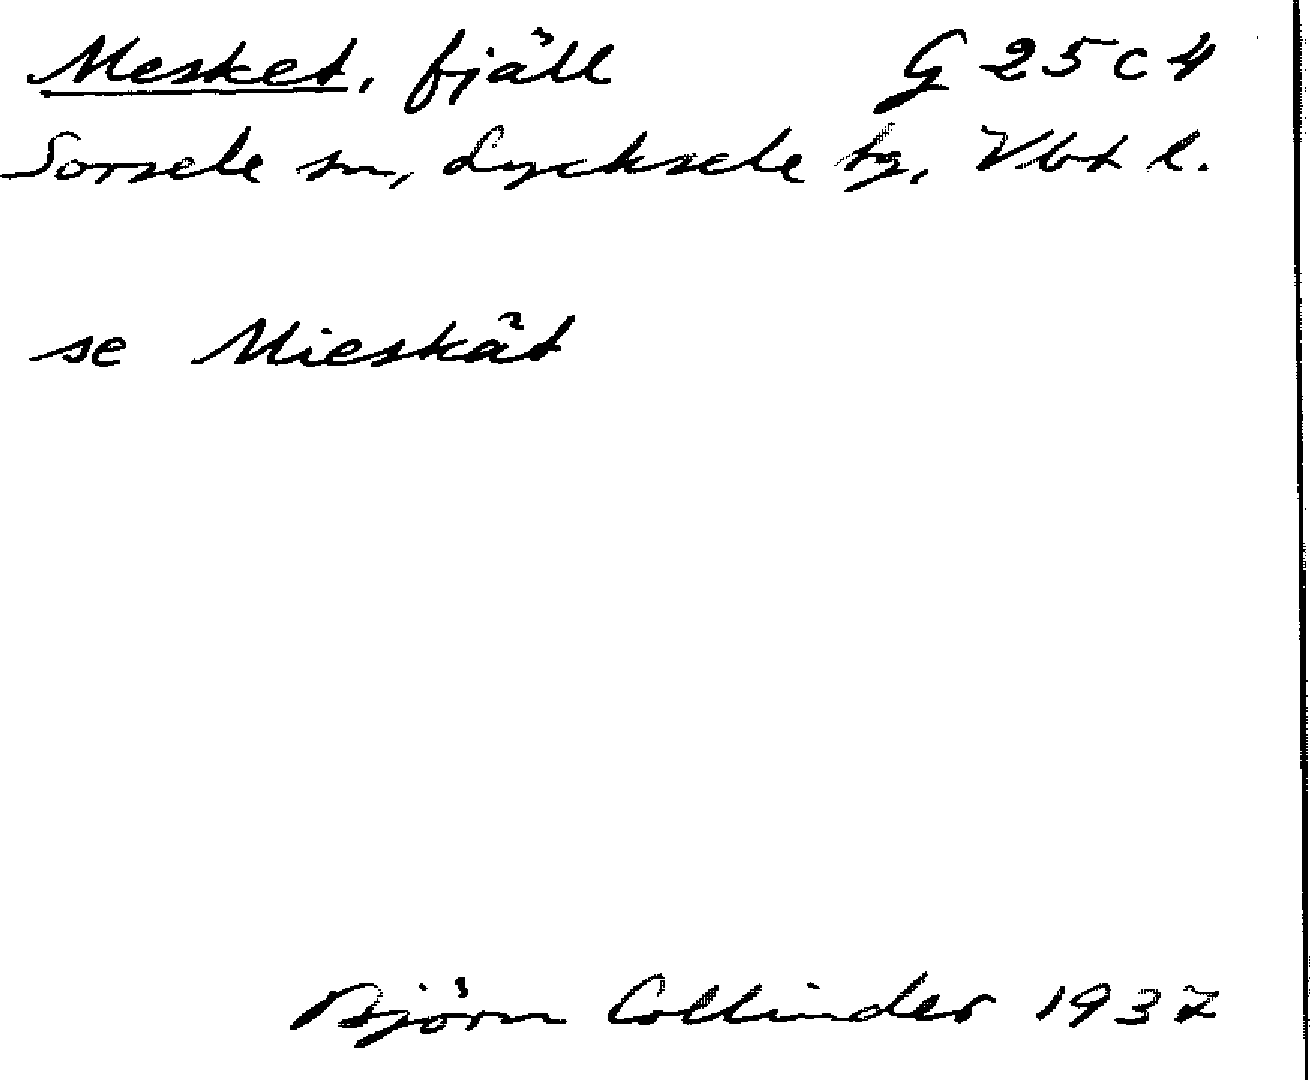 Mesket, fjäll G 25 c 4
Sorsele sn, Lycksele tg. Vbt l.
se Mieskät
Björn Collinder 1937